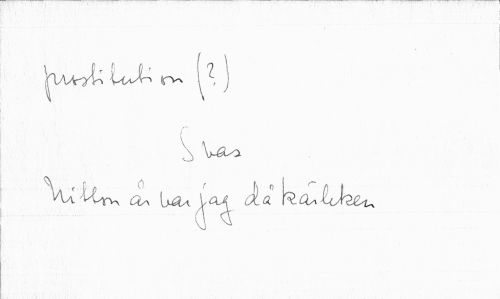 prostitution (?)
Svar
Nitton år var jag då kärleken